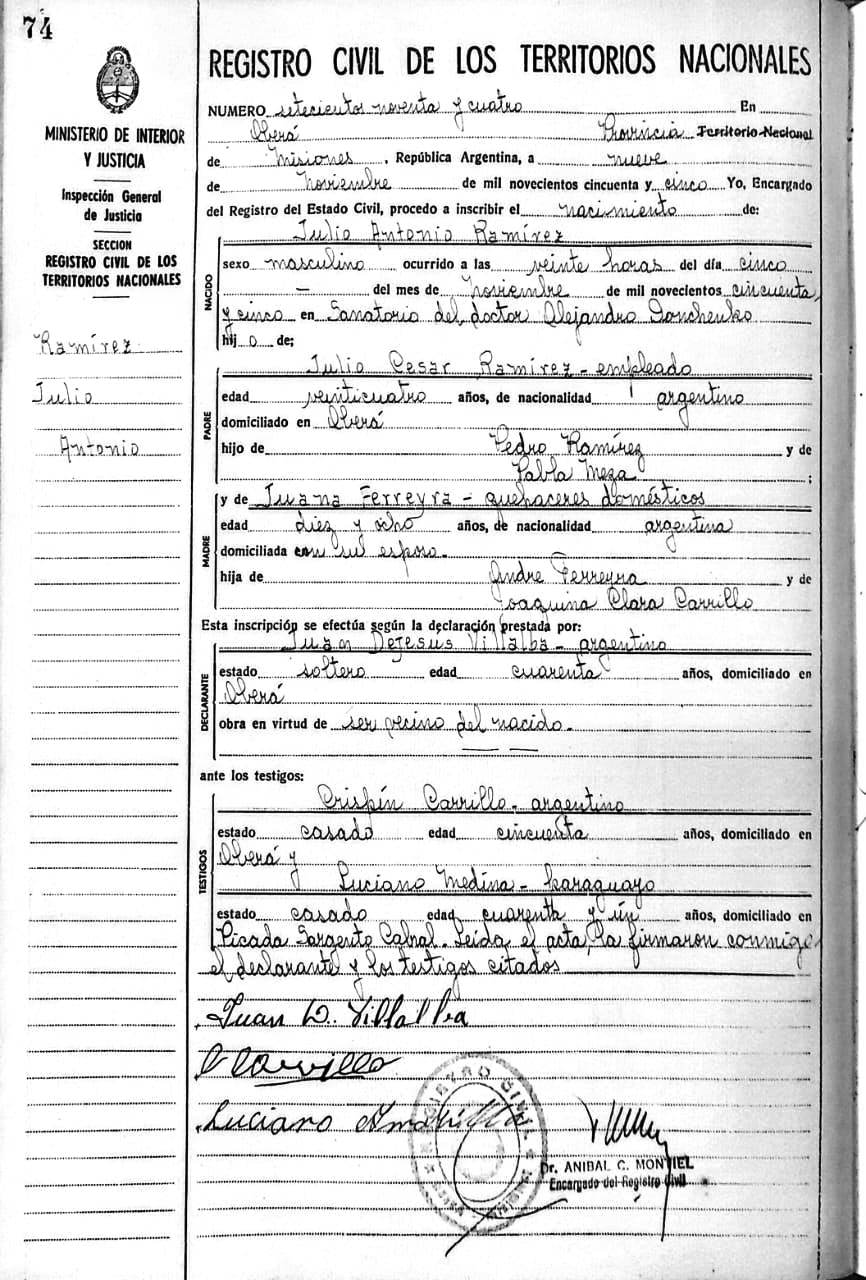 74
MINISTERIO DE INTERIOR
Y JUSTICIA
Inspección General
de Justicia
SECCION
REGISTRO CIVIL DE LOS
TERRITORIOS NACIONALES
Ramírez
Julio
Antonio
REGISTRO CIVIL DE LOS TERRITORIOS NACIONALES
NUMERO setecientos noventa y cuatro En
Oberá Provincia Territorio Nacional
de Misiones, República Argentina, a nueve
de Noviembre de mil novecientos cincuenta y cinco Yo, Encargado
del Registro del Estado Civil, procedo a inscribir el nacimiento de:
NACIDO
Julio Antonio Ramírez
sexo masculino ocurrido a las veinte horas del día cinco
— del mes de Noviembre de mil novecientos cincuenta
y cinco en Sanatorio del doctor Alejandro Gonchenko
hijo de;
PADRE
Julio Cesar Ramírez - empleado
edad veinticuatro años, de nacionalidad argentino
domiciliado en Oberá
hijo de Pedro Ramírez y de
Pabla Meza;
MADRE
y de Juana Ferreyra - quehaceres domésticos
edad diez y ocho años, de nacionalidad argentina
domiciliada con su esposo.
hija de Andre Ferreyra y de
Joaquina Clara Carrillo
Esta inscripción se efectúa según la declaración prestada por:
DECLARANTE
Juan DeJesus Villalba - argentino
estado soltero edad cuarenta años, domiciliado en
Oberá
obra en virtud de ser vecino del nacido.
ante los testigos:
TESTIGOS
Crispín Carrillo - argentino
estado casado edad cincuenta años, domiciliado en
Oberá y
Luciano Medina - paraguayo
estado casado edad cuarenta y un años, domiciliado en
Picada Sargento Cabral. Leída el acta, la firmaron conmigo
el declarante y los testigos citados
Juan D. Villalba
C Carrillo
Luciano
REGISTRO CIVIL
Dr. ANIBAL C. MONTIEL
Encargado del Registro Civil